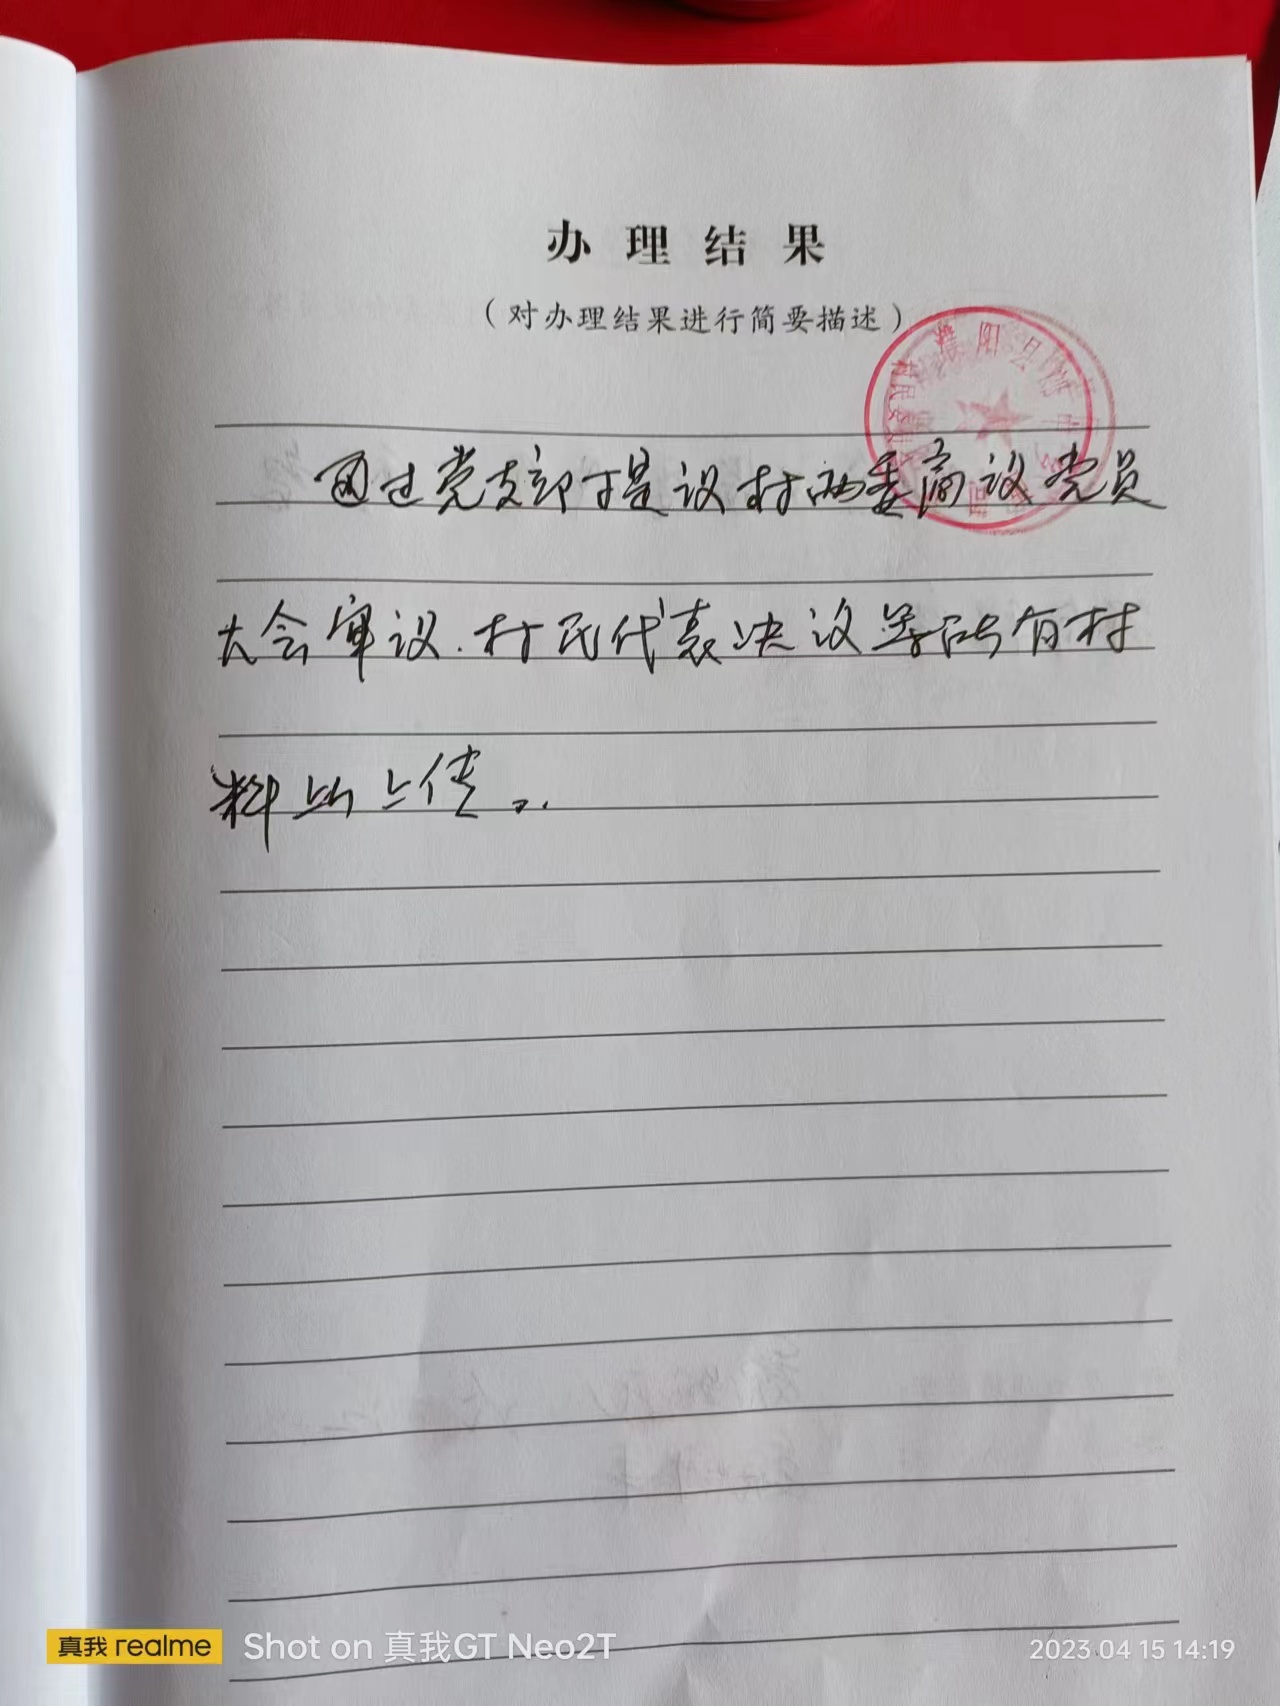 办理结果
（对办理结果进行简要描述）
濮阳县
村民委员会
通过党支部于是议村两委商议党员
大会审议.村民代表决议等所有材
料以上传。.
真我 realme Shot on 真我GT Neo2T
2023.04 15 14:19